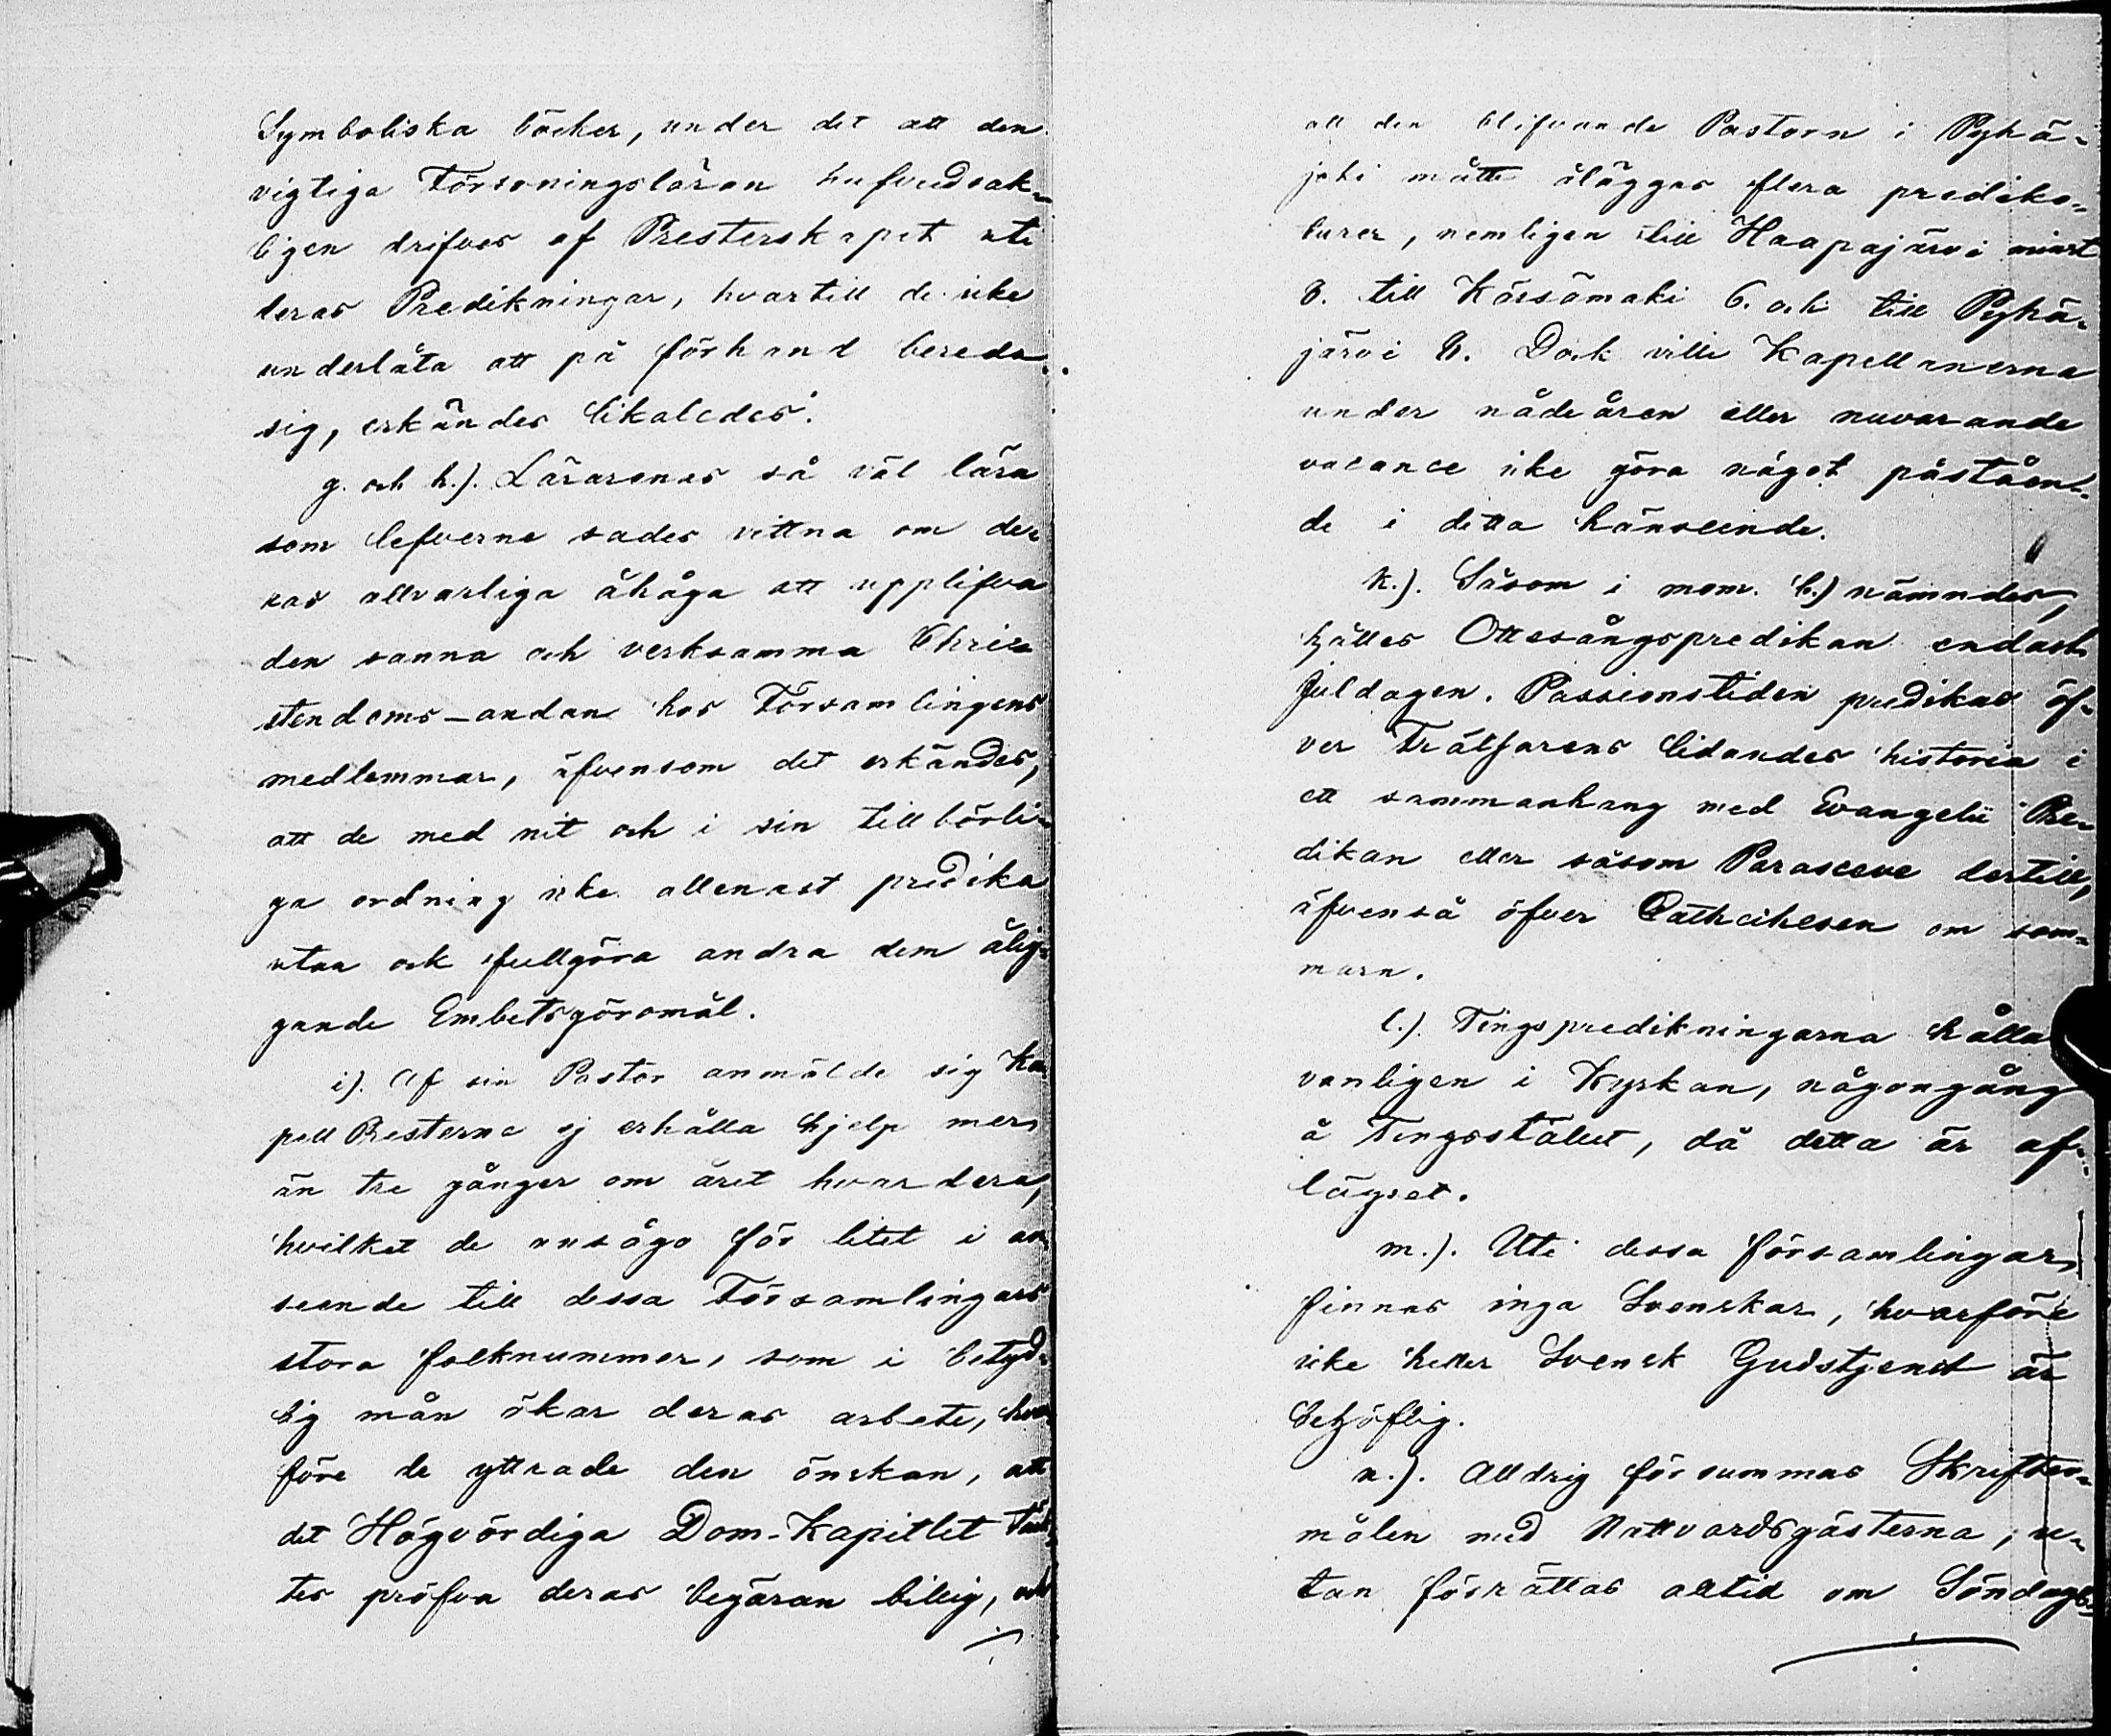 Symboliska böcker, under det att den
vigtiga Försoningsläran hufvudsak-
ligen drifves af Presterskapet uti
deras Predikningar, hvartill de icke
underlåta att på förhand bereda
sig, erkändes likaledes.
g. och h.). Lärarenas så väl lära
som lefverne sades vittna om de-
ras allvarliga åhåga att upplifva
den sanna och verksamma Chri-
stendoms-andan hos Församlingens
medlemmar, äfvensom det erkändes,
att de med nit och i sin tillbörli-
ga ordning icke allenast predika
utan ock fullgöra andra dem ålig-
gande Embetsgöromål.
i). Af sin Pastor anmälde sig Ka
pell Presterne ej erhålla hjelp mer
än tre gånger om året hvardera,
hvilket de ansågo för litet i an
seende till dessa Församlingars
stora folknummer, som i betyd-
lig mån ökar deras arbete, hvar
före de yttrade den önskan, att
det Högvördiga Dom-Kapitlet täck
tes pröfva deras begäran billig, och
att den blifvande Pastorn i Pyhä-
joki måtte åläggas flera prediko-
turer, nemligen till Haapajärvi minst
8. till Kärsämäki 6. och till Pyhä-
järvi 8. Dock ville Kapellanerna
under nådeåren eller nuvarande
vacance icke göra något påståen-
de i detta hänseende.
k.). Såsom i mom. b.) nämndes,
hålles Ottesångspredikan endast
Juldagen. Passionstiden predikas öf-
ver Frälsarens lidandes historia i
ett sammanhang med Evangelii Pre-
dikan eller såsom Parasceve dertill,
äfvenså öfver Cathechesen om som-
marn.
l.). Tingspredikningarna hållas
vanligen i Kyrkan, någongång
å Tingsstället, då detta är af-
lägset.
m.). Uti dessa församlingar
finnas inga Svenskar, hvarföre
icke heller Svensk Gudstjenst är
behöflig.
n.). Alldrig försummas Skrifter-
målen med Nattvardsgästerna, u-
tan förrättas alltid om Söndags